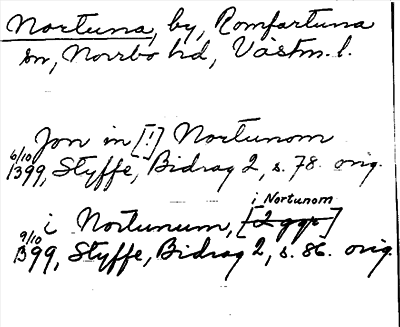 Nortuna, by, Romfartuna
sn, Norrbo hd, Västm. l.
Jon in [!] Nortunom
6/10 1399, Styffe, Bidrag 2, s. 78. orig.
i Nortunom
i Nortunum, [2 ggr]
9/10 1399, Styffe, Bidrag 2, s. 86. orig.